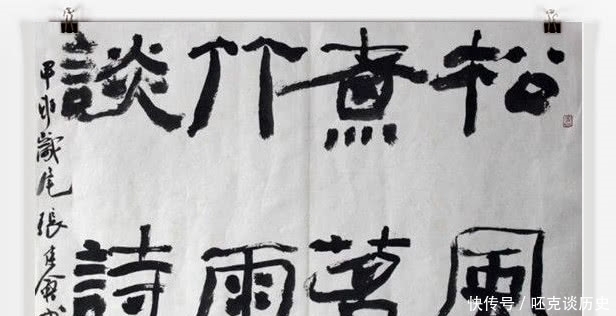 松風
煮茗
竹雨
談詩
甲申歲尾張
快传号 / 呸克谈历史